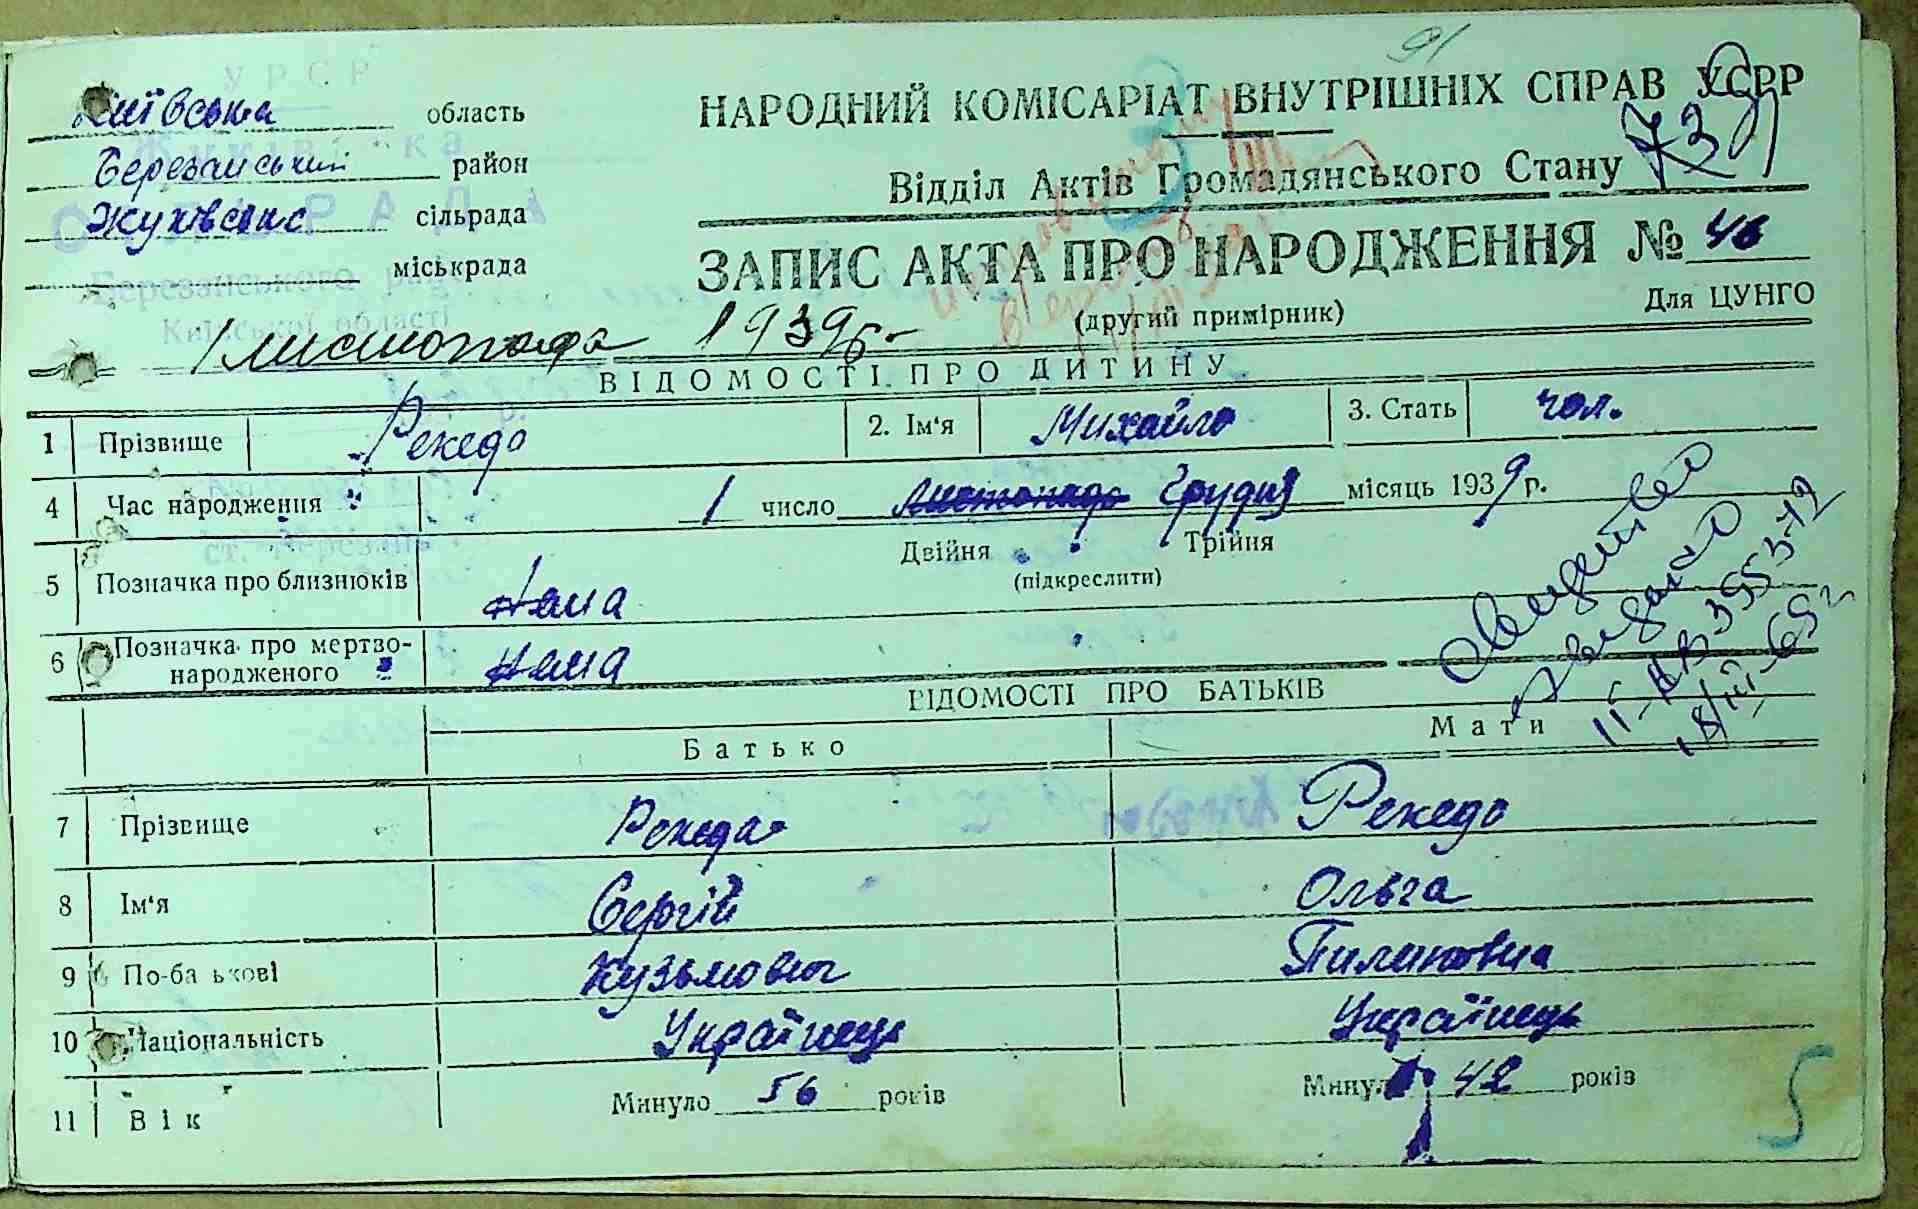 91
Київська область
Березанський район
Жуківська сільрада
міськрада
НАРОДНИЙ КОМІСАРІАТ ВНУТРІШНІХ СПРАВ УСРР
Відділ Актів Громадянського Стану
ЗАПИС АКТА ПРО НАРОДЖЕННЯ № 46
(другий примірник)
Для ЦУНГО
1 листопада 1939 р.
ВІДОМОСТІ ПРО ДИТИНУ
1 Прізвище Рекеда 2. Ім'я Михайло 3. Стать чол.
4 Час народження 1 число листопада Грудня місяць 1939 р.
5 Позначка про близнюків нема Двійня Трійня
(підкреслити)
6 Позначка про мертво-
народженого нема
ВІДОМОСТІ ПРО БАТЬКІВ
Батько Мати
7 Прізвище Рекеда Рекеда
8 Ім'я Сергій Ольга
9 По-ба ькові Кузьмович Пилиповна
10 Національність Українець Українець
11 Вік Минуло 56 років Минуло 42 років
5